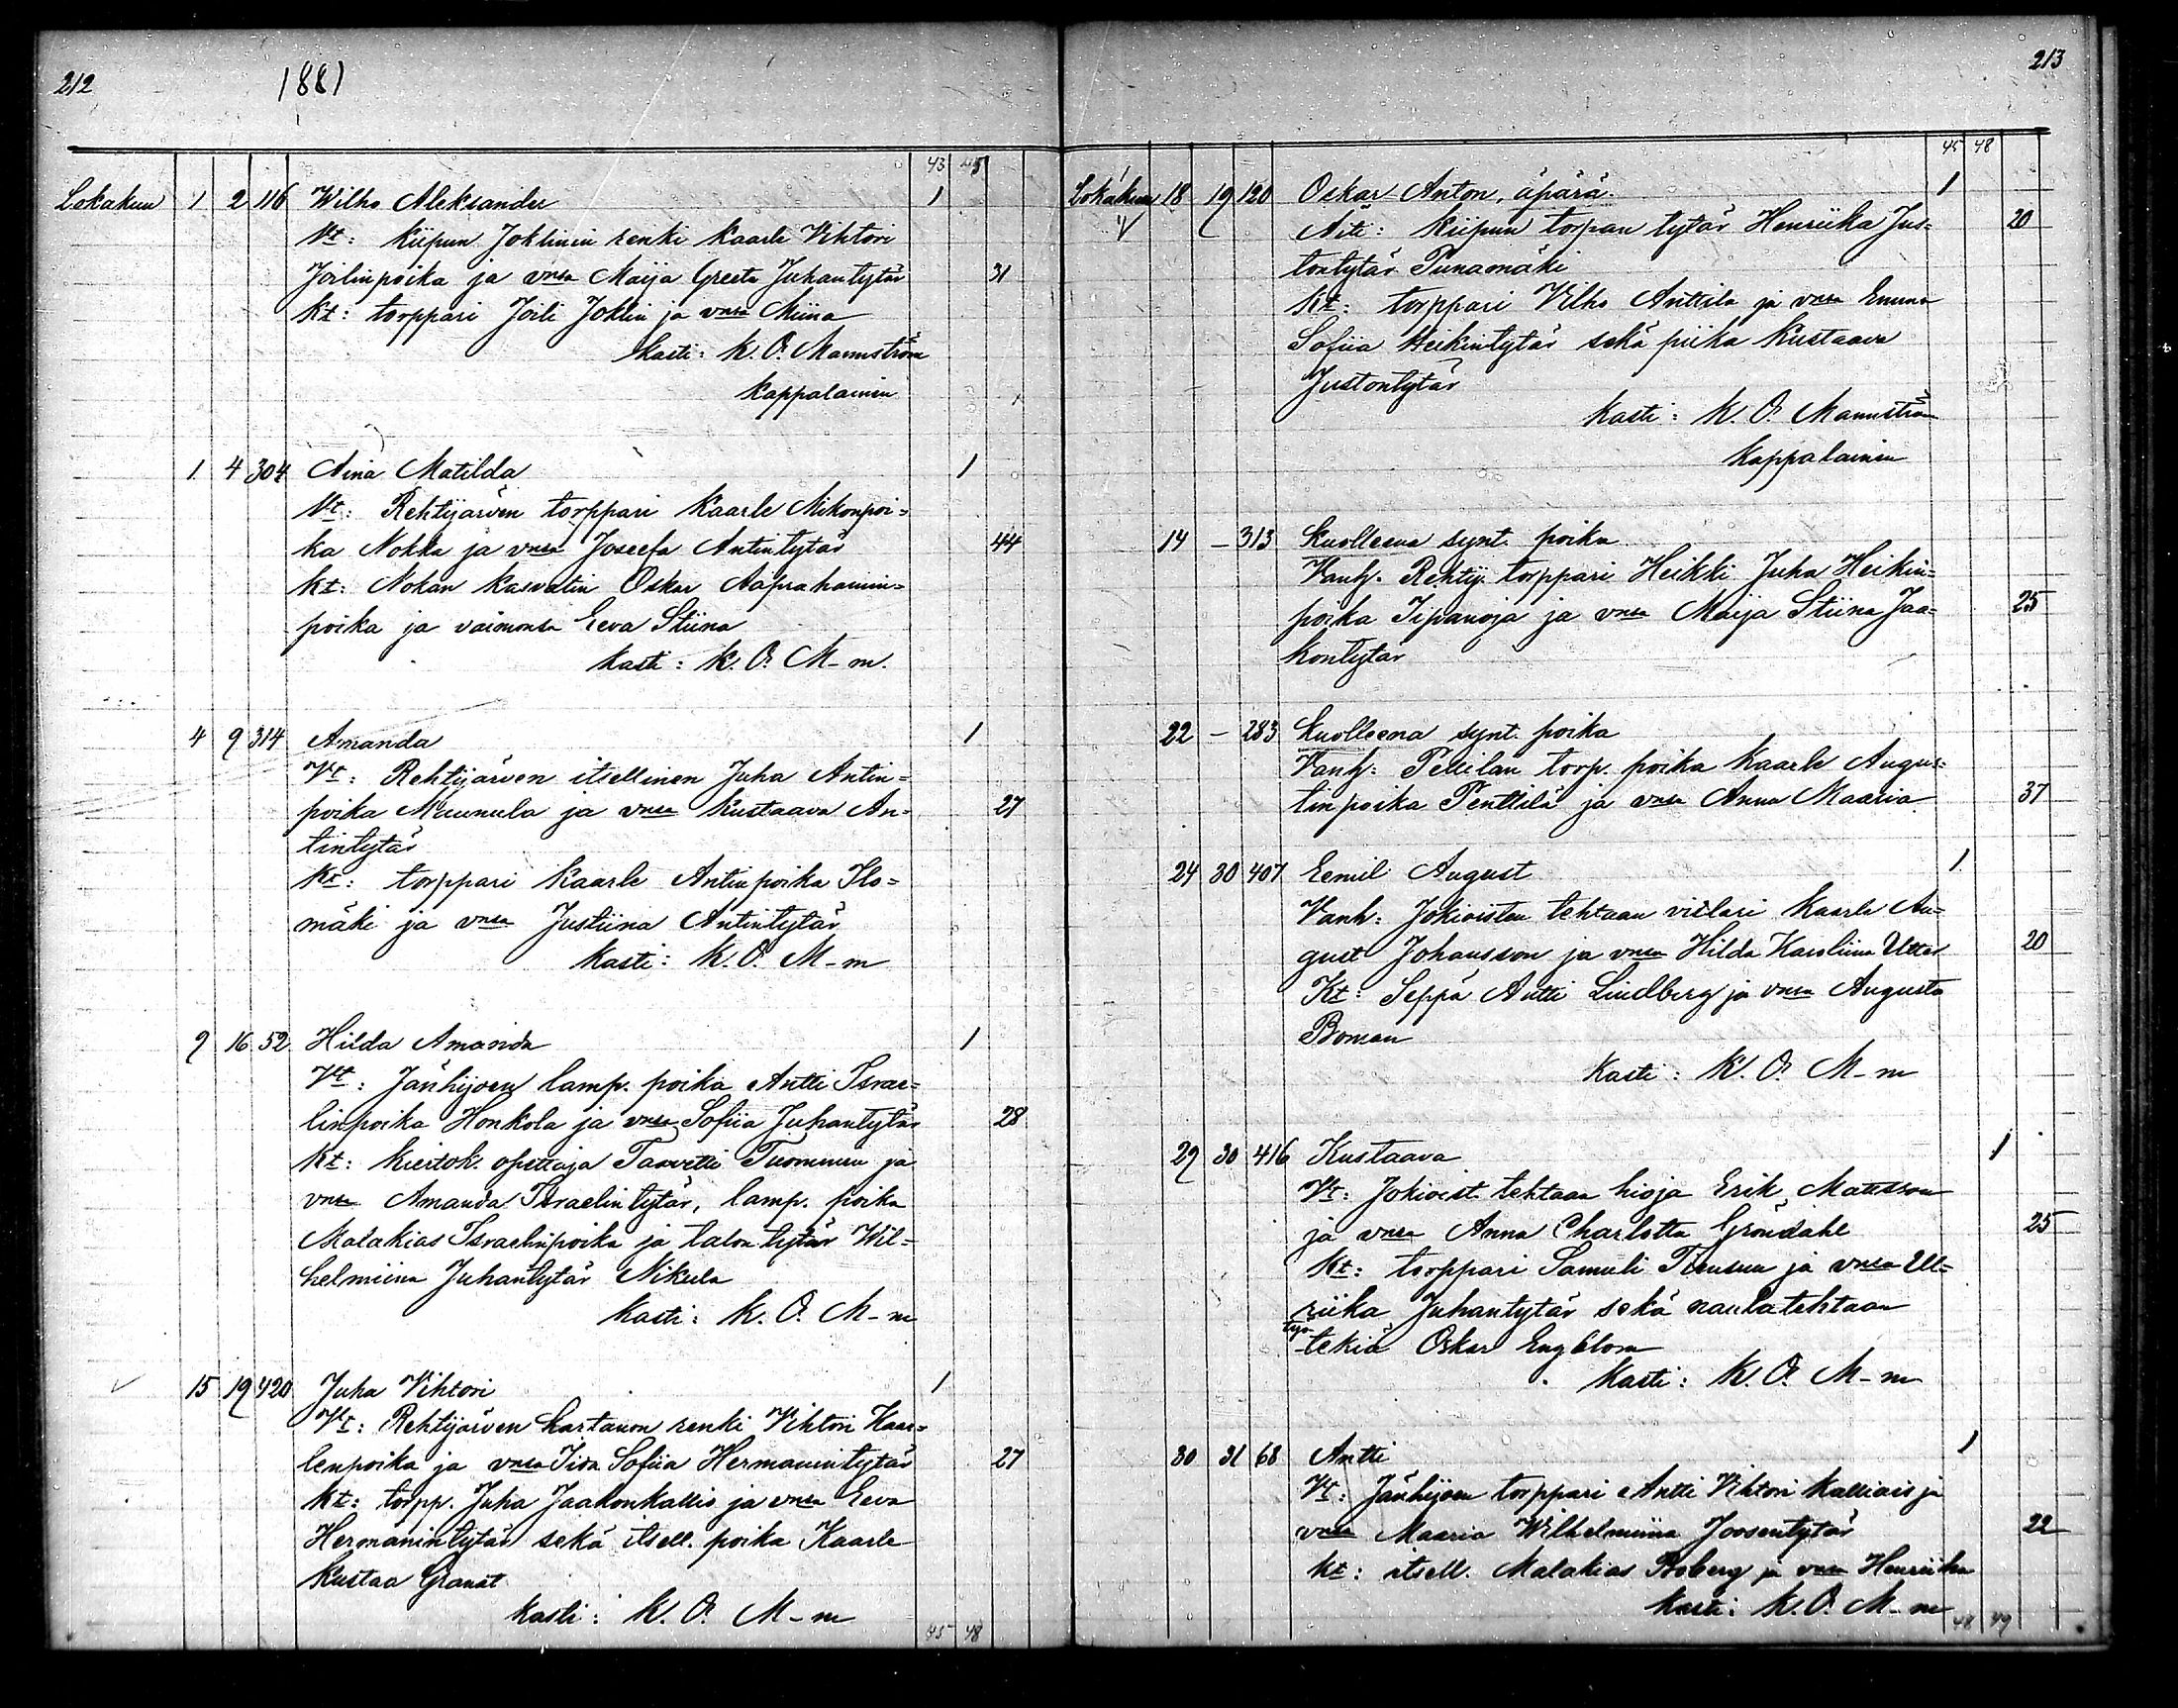 212
1881
43 45
Lokakuu 1 2 116 Wilho Aleksander 1
Vt: Kiipun Joklinin renki Kaarle Vihtori
Joilinpoika ja vnsa Maija Greeta Juhantytär 31
Kt: torppari Joili Joklin ja vnsa Miina
Kasti: K. O. Mannström
Kappalainen
1 4 304 Aina Matilda 1
Vt: Rehtijärven torppari Kaarle Mikonpoi=
ka Nokka ja vnsa Josefa Antintytär 44
Kt: Nokan kasvatin Oskar Aaprahamin=
poika ja vaimonsa Eeva Stiina
Kasti: K. O. M-m.
4 9 314 Amanda 1
Vt: Rehtijärven itsellinen Juha Antin=
poika Maunula ja vnsa Kustaava An= 27
tintytär
Kt: torppari Kaarle Antinpoika Ilo=
mäki ja vnsa Justiina Antintytär
Kasti: K. O. M-m
9 16 52 Hilda Amanda 1
Vt: Jänhijoen lamp. poika Antti Israe=
linpoika Honkola ja vnsa Sofiia Juhantytär 28
Kt: Kiertok. opettaja Taavetti Tuominen ja
vnsa Amanda Israelintytär, lamp. poika
Malakias Israelinpoika ja talon tytär Wil=
helmiina Juhantytär Nikula
Kasti: K. O. M-m
15 19 420 Juha Vihtori 1
Vt: Rehtijärven kartanon renki Vihtori Kaar=
lenpoika ja vnsa Iida Sofiia Hermanintytär 27
Kt: torpp. Juha Jaakonkallio ja vnsa Eeva
Hermanintytär sekä itsell. poika Kaarle
Kustaa Granat
Kasti: K. O. M-m
45 48
213
45 48
Lokakuu 18 19 120 Oskar Anton, äpärä. 1
Äiti: Kiipun torpan tytär Henriika Jus= 20
tontytär Punamäki
Kt: torppari Vilho Anttila ja vnsa Emma
Sofiia Heikintytär sekä piika Kustaava
Justontytär
Kasti: K. O. Mannström
Kappalainen
14 – 313 Kuolleena synt. poika
Vanh. Rehtij. torppari Heikki Juha Heikin=
poika Iipanoja ja vnsa Maija Stiina Jaa= 25
kontytär
22 – 283 Kuolleena synt. poika
Vanh: Pellilan torp. poika Kaarle Augus=
tinpoika Penttilä ja vnsa Anna Maaria 37
24 30 407 Eemil August 1
Vanh: Jokioisten tehtaan viilari Kaarle Au=
gust Johansson ja vnsa Hilda Karoliina Utter 20
Kt: Seppä Antti Lindberg ja vnsa Augusta
Boman
Kasti: K. O. M-m
29 30 416 Kustaava 1
Vt: Jokioist. tehtaan hioja Erik Matsson
ja vnsa Anna Charlotta Gröndahl 25
Kt: torppari Samuli Tuusun ja vnsa Ul=
riika Juhantytär sekä naulatehtaan
työ-
tekiä Oskar Engblom
Kasti: K. O. M-m
30 31 68 Antti 1
Vt: Jänhijoen torppari Antti Vihtori Kalliois ja
vnsa Maaria Wilhelmiina Joosentytär 22
Kt: itsell. Malakias Boberg ja vnsa Henriika
Kasti: K. O. M-m
48 49